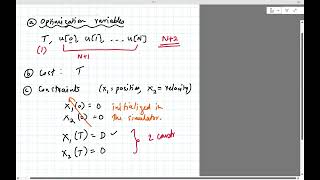 (a) Optimization variables
T, u[0], u[1], ... u[N] N+2
(1) N+1
(b) Cost: T
(c) Constraints (x₁ = position, x₂ = velocity)
x₁(0) = 0 initialized in
x₂(0) = 0 the simulator.
x₁(T) = D ✓
x₂(T) = 0 } 2 constr